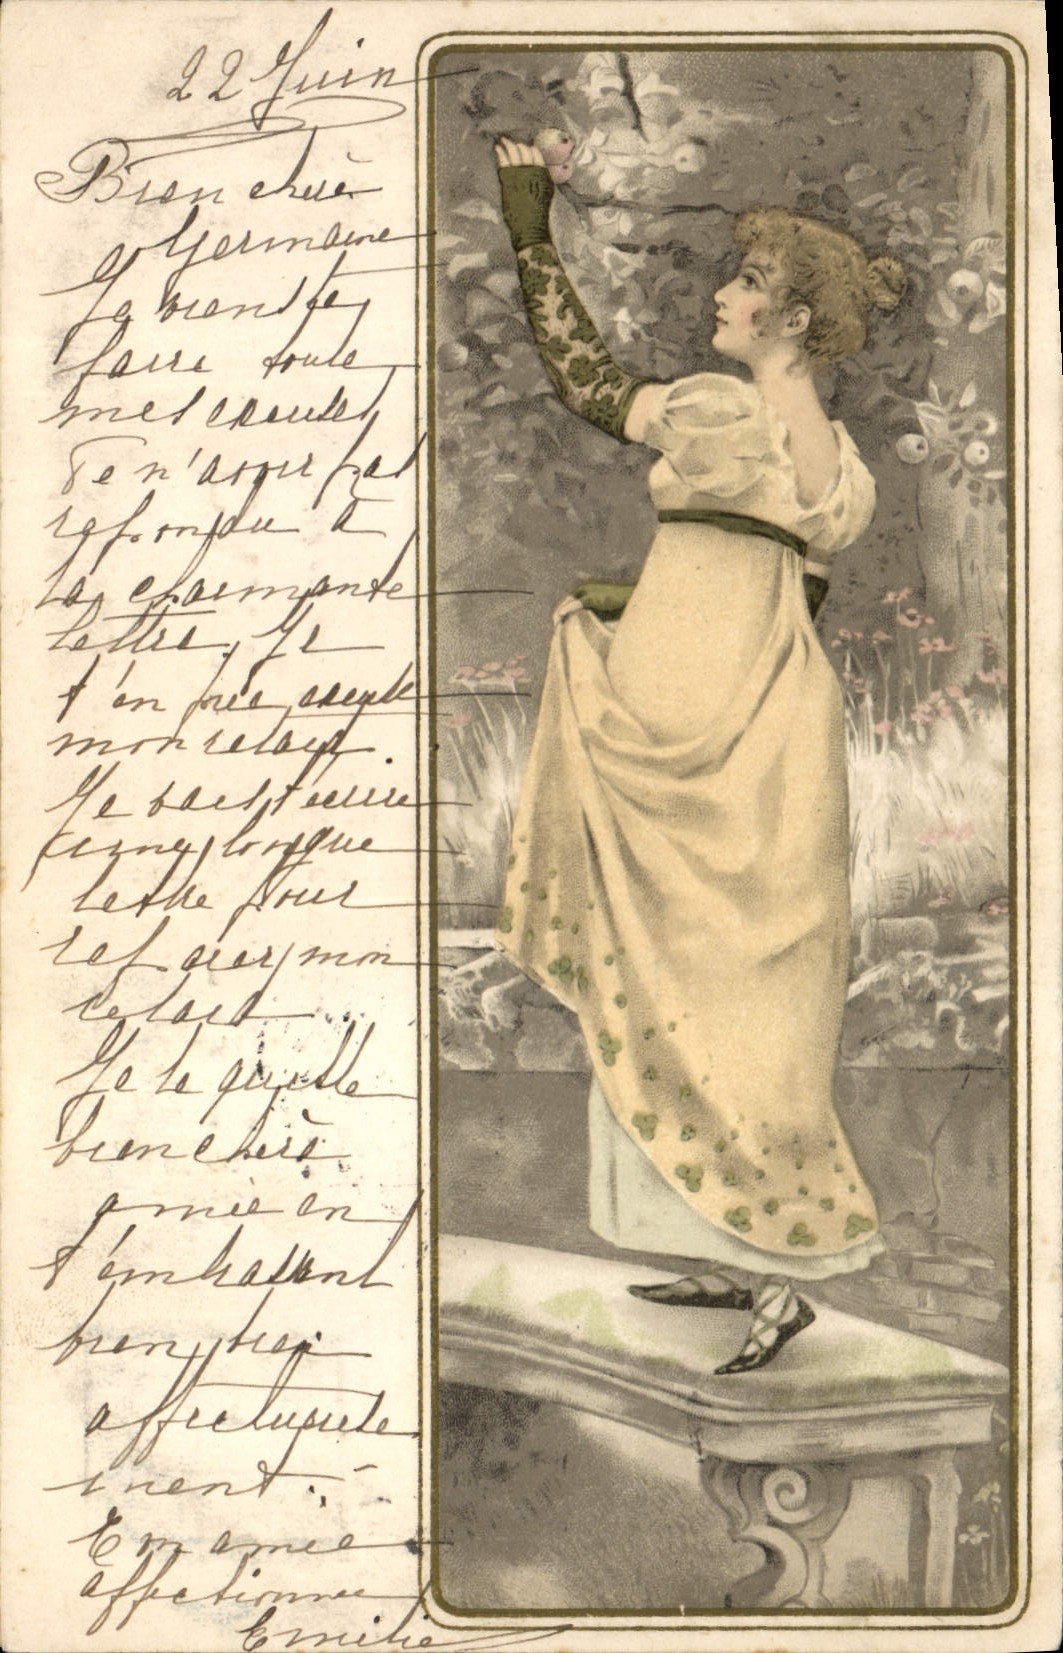 22 Juin
Bien chère
Germaine
Je viens te
faire toute
mes excuses
De n'avoir pas
repondu à
ta charmante
lettre. Je
t'en prie excuse
mon retard.
Je vais t'écrire
une longue
lettre pour
reparer mon
retard
Je te quitte
bien chère
amie en
t'embrassant
bien, bien
affectueuse
ment.
Ton amie
affectionnée
Emilie